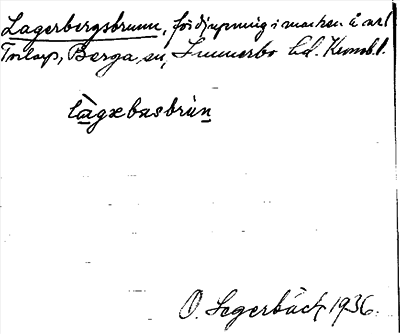 Lagerbergsbrunn, fördjupning i marken å arl
Torlarp, Berga sn, Sunnerbo hd. Kronob. l.
làgæbæsbrùn
O. Segerbäck 1936.